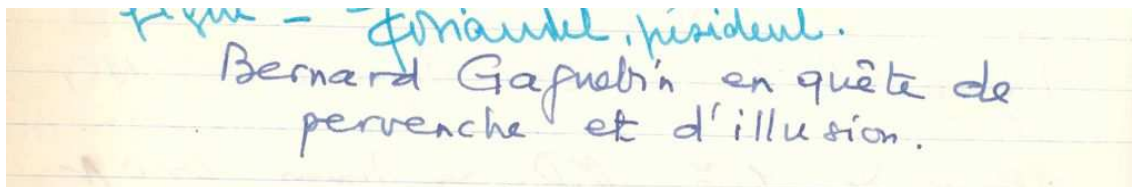 président.
Bernard Gagnebin en quête de
pervenche et d'illusion.